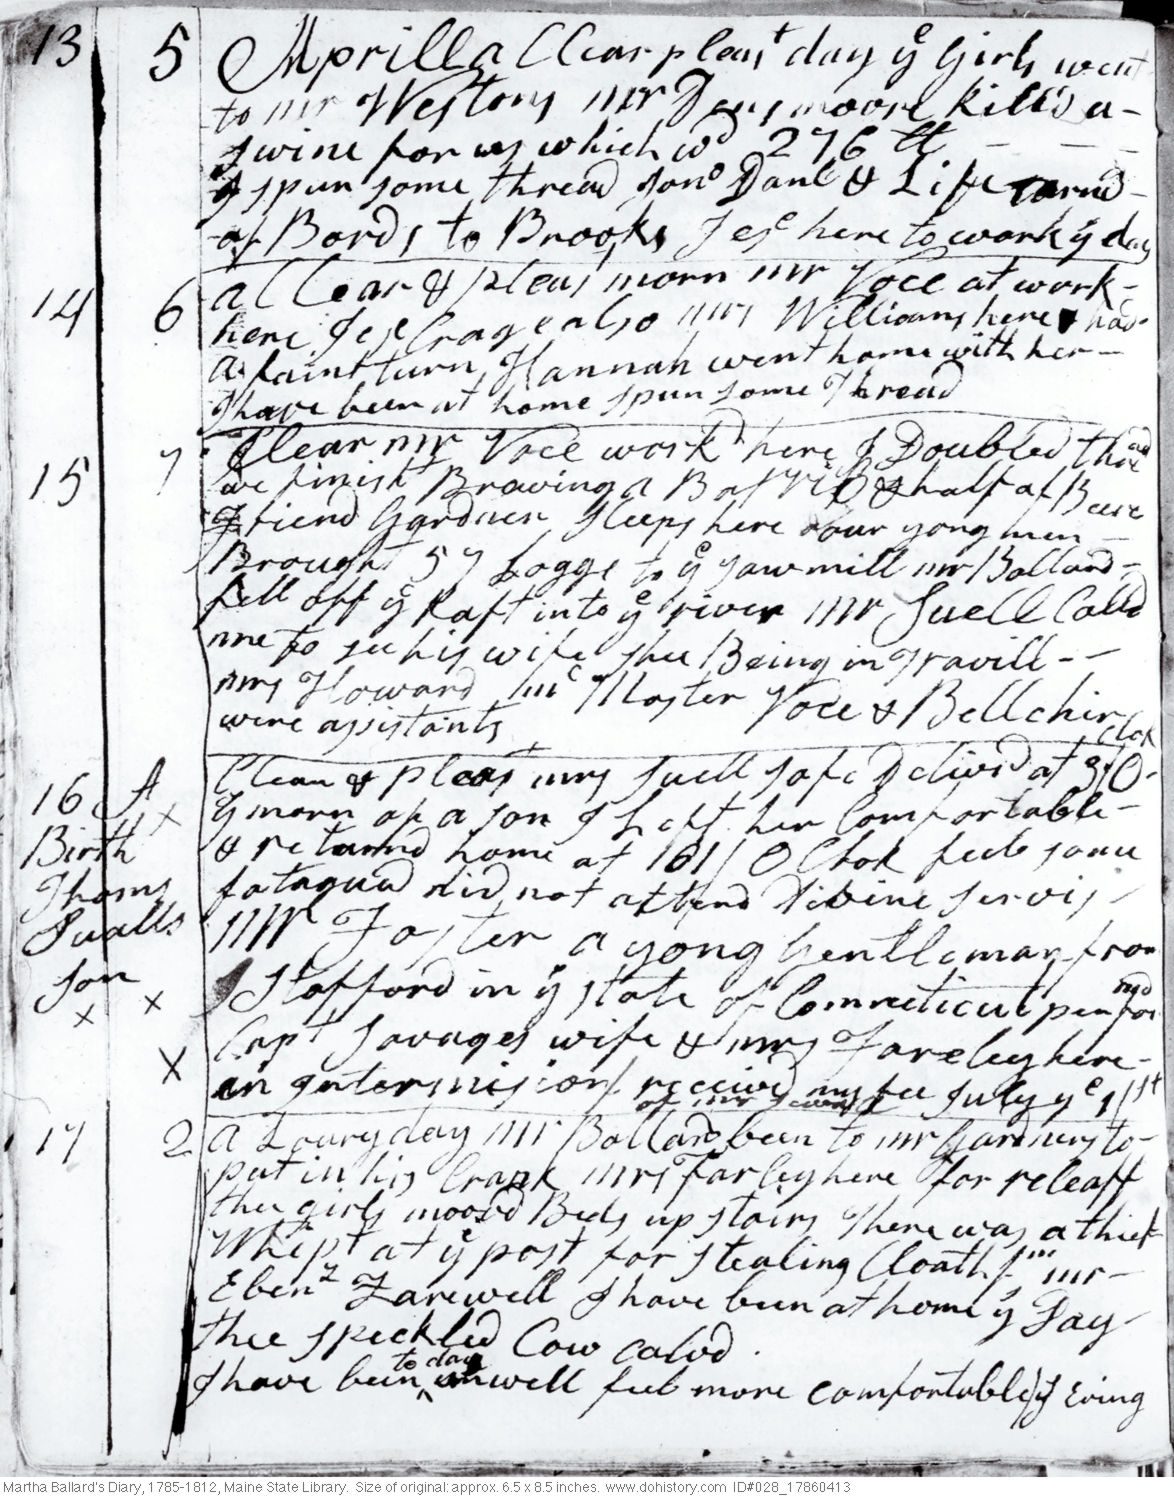 13 5 Aprill a Clear pleast day ye Girls went
to mr Westons mr Densmoore killd a -
swine for us which wd 276 lb - - -
I spun some thread Jono Danl & Life
of Bords to Brooks Jese here to work ye day
14 6 a Clear & pleas morn mr Voce at work -
here Jese Crage also mrs Williams here & had
a faint turn Hannah went home with her -
I have been at home spun some Thread
15 7 Clear mr Voce workt here I Doubled thread
we finisht Brewing a Bar & half of Beere
friend Gardner sleeps here our yong men -
Brought 57 Loggs to ye sawmill mr Ballard -
fell off ye Raft into ye river mr Suell Calld
me to see his wife shee Being in Travill - -
mrs Howard mc Master Voce & Bellchir
were assistants Clok
16 A Clear & pleas mrs Suell safe Delivd at 3 O -
x ye morn of a son I Left her Comfortable -
Birth & returnd home at O Clok feel some
Thoms fatagued did not attend divine servis
Sualls mr Foster a yong Gentleman from
son Stafford in ye state of Connecticut performd
x x Capt Savages wife & mrs Fareley here -
x in intermision / received my fee July ye 1/st
of mr Sewall
17 2 a Loury day mr Ballard been to mr Gardners to -
put in his Crank mrs Farley here for releaff
thee girls moovd Beds up stairs There was a thief
Whipt at ye post for stealing Cloath fm mr -
Ebenz Farewell I have been at home ye Day
thee speckled Cow calvd .
to day
I have been ^ unwell feel more comfortable ys Evng
Martha Ballard's Diary, 1785-1812, Maine State Library. Size of original: approx. 6.5 x 8.5 inches. www.dohistory.com ID#028_17860413